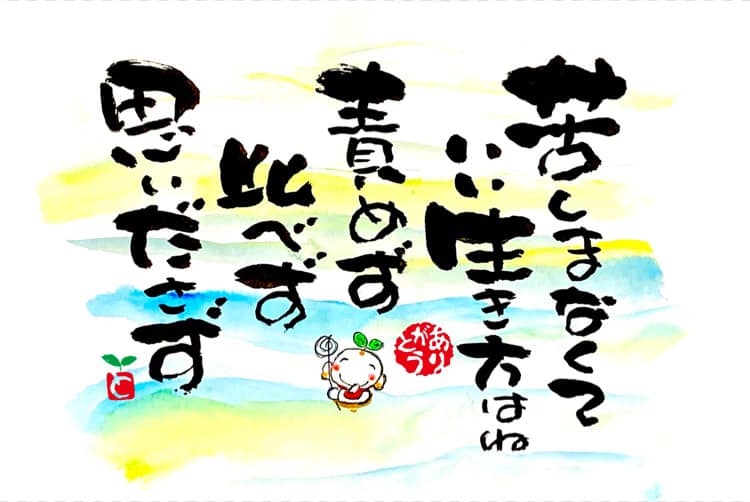 苦しまなくて
いい生き方はね
責めず
比べず
思いださず
ありがとう
と